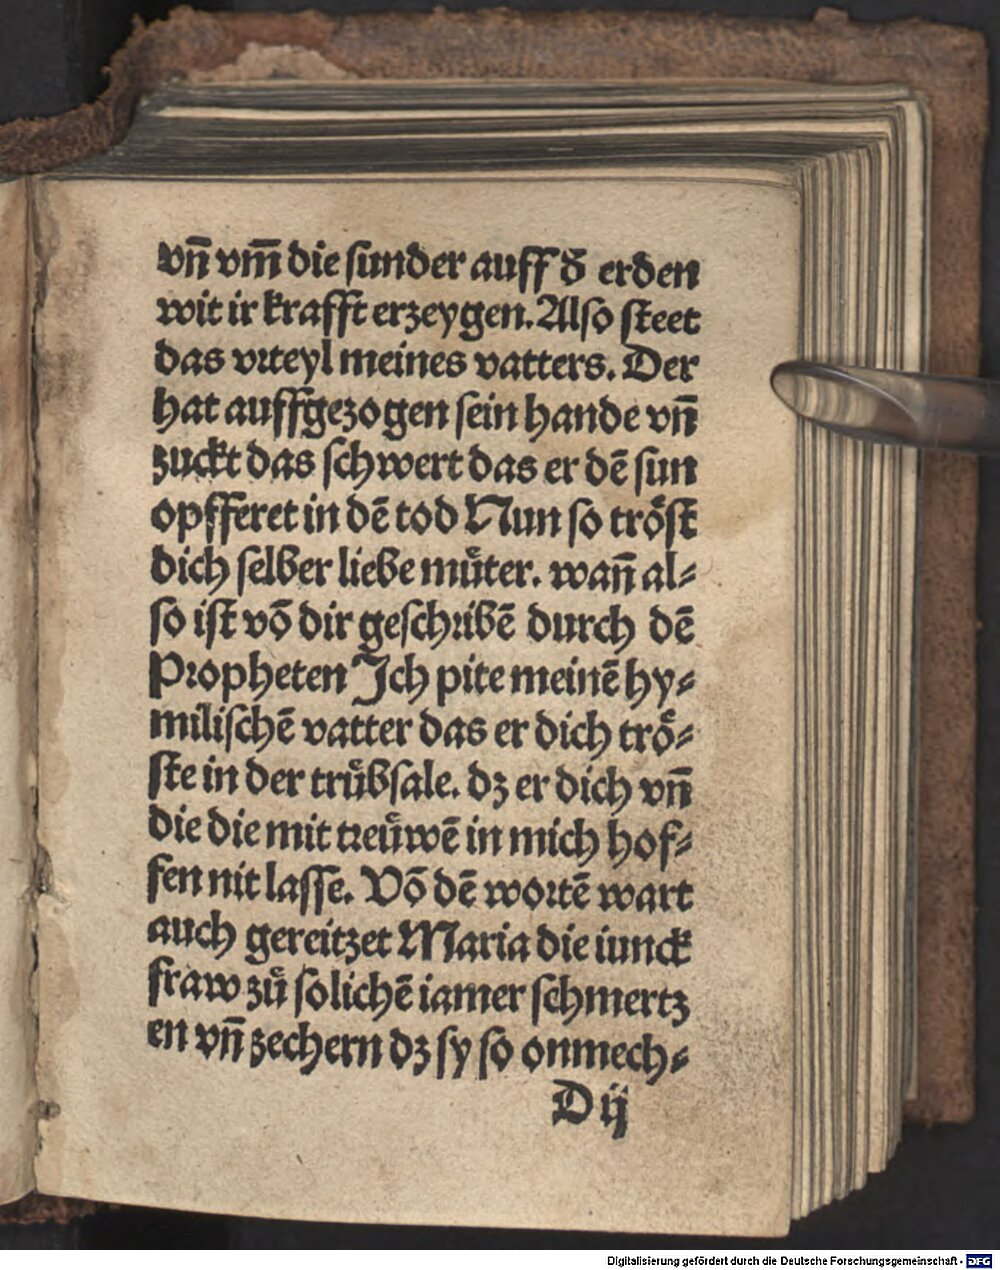 vñ vm̄ die sunder auff d̄ erden
wit ir krafft erzeygen. Also steet
das vrteyl meines vatters. Der
hat auffgezogen sein hande vñ
zuckt das schwert das er dē sun
opfferet in dē tod Nun so troͤst
dich selber liebe muͤter. wañ al⸗
so ist vō dir geschribē durch dē
Propheten Ich pite meinē hy⸗
milischē vatter das er dich troͤ⸗
ste in der truͤbsale. dz er dich vñ
die die mit treuͤwē in mich hof⸗
fen nit lasse. Vō dē wortē wart
auch gereitzet Maria die iunck
fraw zuͤ solichē iamer schmertz
en vñ zechern dz sy so onmech⸗
D ij
Digitalisierung gefördert durch die Deutsche Forschungsgemeinschaft - DFG